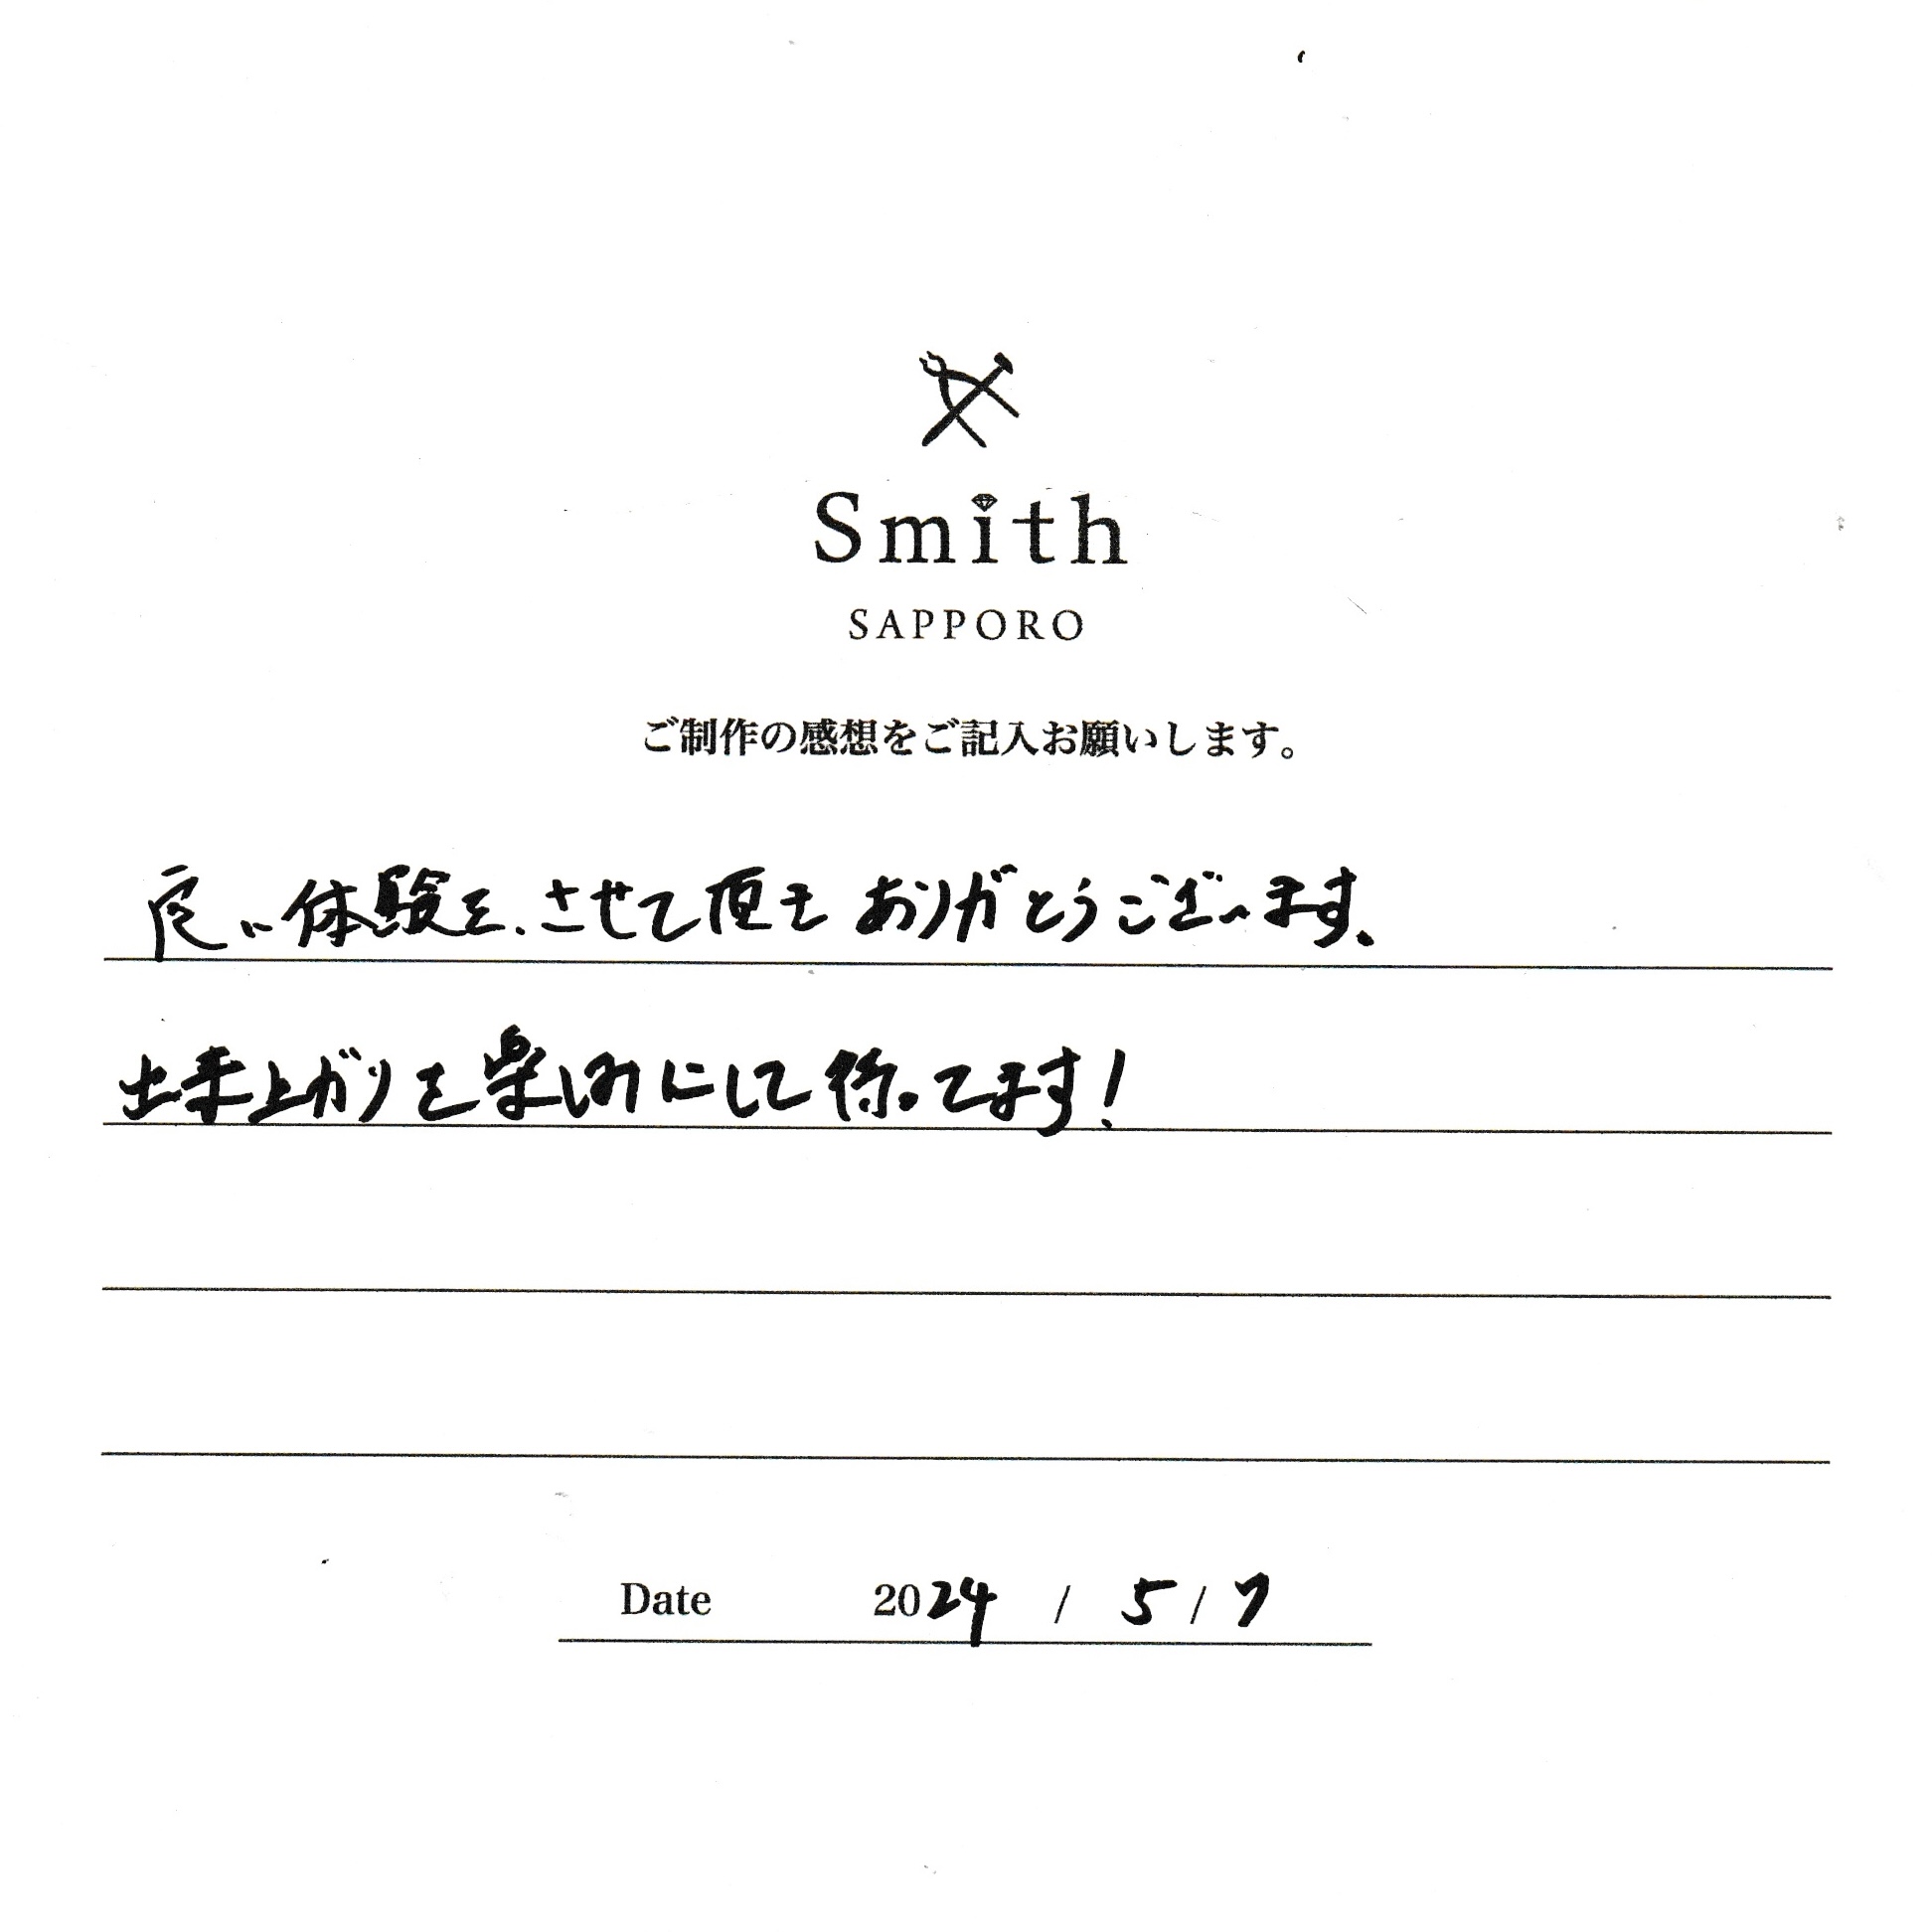 Smith
SAPPORO
ご制作の感想をご記入お願いします。
良い体験を、させて頂き ありがとうございます、
出来上がりを楽しみにして待ってます!
Date 2024 / 5 / 7